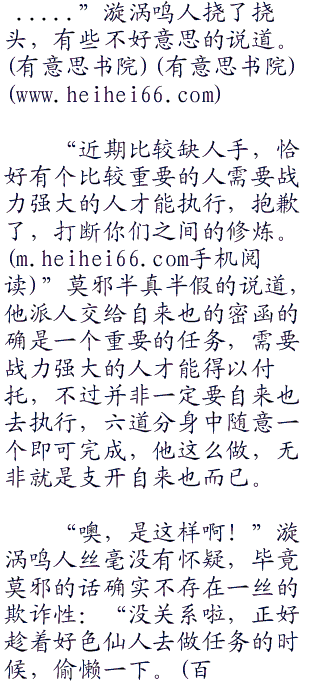 .....”漩涡鸣人挠了挠
头，有些不好意思的说道。
(有意思书院)(有意思书院)
(www.heihei66.com)
“近期比较缺人手，恰
好有个比较重要的人需要战
力强大的人才能执行，抱歉
了，打断你们之间的修炼。
(m.heihei66.com手机阅
读)”莫邪半真半假的说道，
他派人交给自来也的密函的
确是一个重要的任务，需要
战力强大的人才能得以付
托，不过并非一定要自来也
去执行，六道分身中随意一
个即可完成，他这么做，无
非就是支开自来也而已。
“噢，是这样啊！”漩
涡鸣人丝毫没有怀疑，毕竟
莫邪的话确实不存在一丝的
欺诈性：“没关系啦，正好
趁着好色仙人去做任务的时
候，偷懒一下。(百